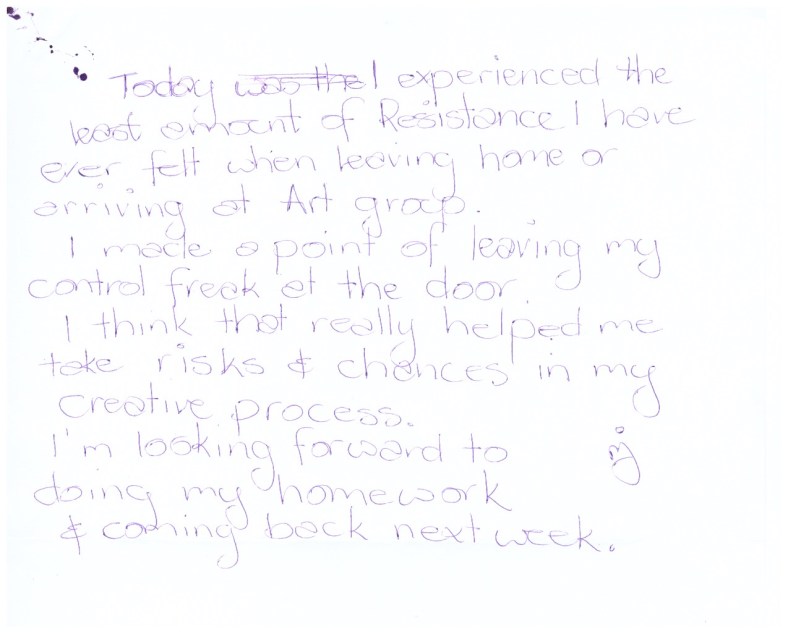 Today was the I experienced the
least amount of Resistance I have
ever felt when leaving home or
arriving at Art group.
I made a point of leaving my
control freak at the door.
I think that really helped me
take risks & chances in my
creative process.
I'm looking forward to
doing my homework
& coming back next week.